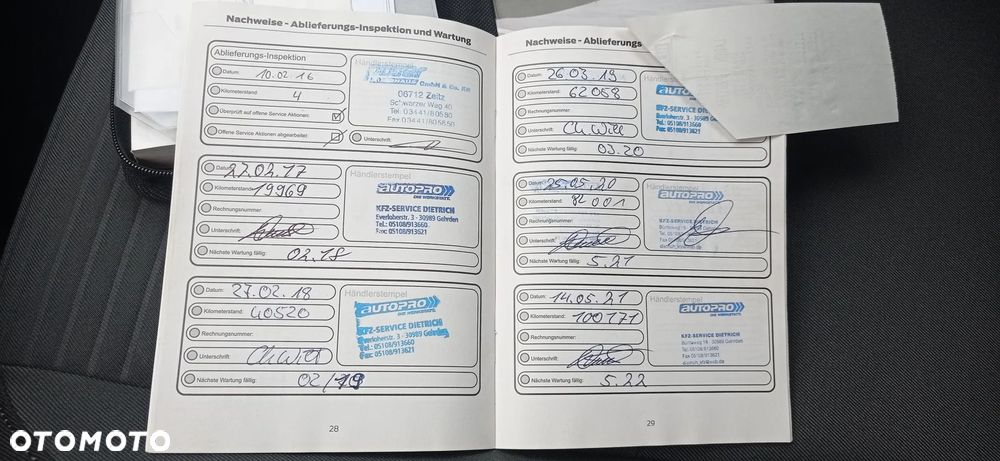 Nachweise - Ablieferungs-Inspektion und Wartung
Ablieferungs-Inspektion
Händlerstempel
Datum: 10.02.16
GmbH & Co. KG
Kilometerstand: 4
06712 Zeitz
Schwarzer Weg 40
Überprüft auf offene Service Aktionen:
Offene Service Aktionen abgearbeitet:
Unterschrift:
Datum: 27.02.17
Händlerstempel
Kilometerstand: 19969
AUTOPRO
DIE WERKSTATT.
Rechnungsnummer:
KFZ-SERVICE DIETRICH
Everloherstr. 3 - 30989 Gehrden
Tel.: 05108/913660
Fax: 05108/913621
Unterschrift:
Nächste Wartung fällig: 02.18
Datum: 27.02.18
Händlerstempel
Kilometerstand: 40520
AUTOPRO
DIE WERKSTATT.
Rechnungsnummer:
KFZ-SERVICE DIETRICH
Everloherstr. 3 - 30989 Gehrden
Tel.: 05108/913660
Fax: 05108/913621
Unterschrift: Ch Will
Nächste Wartung fällig: 02/19
28
Nachweise - Ablieferungs
Datum: 26.03.19
Kilometerstand: 62058
AUTOPRO
Rechnungsnummer:
KFZ-SERVICE
Everloherstr. 3 - 30989
Tel.: 05108/913660
Fax: 05108/913621
Unterschrift: Ch Will
Nächste Wartung fällig: 03.20
Datum: 25.05.20
Händlerstempel
Kilometerstand: 82001
AUTOPRO
DIE WERKSTATT.
Rechnungsnummer:
KFZ-SERVICE DIETRICH
Unterschrift:
Nächste Wartung fällig: 5.21
Datum: 14.05.21
Händlerstempel
Kilometerstand: 100171
AUTOPRO
DIE WERKSTATT.
Rechnungsnummer:
KFZ-SERVICE DIETRICH
Tel. 05108/913660
Fax 05108/913621
Unterschrift:
Nächste Wartung fällig: 5.22
29
OTOMOTO